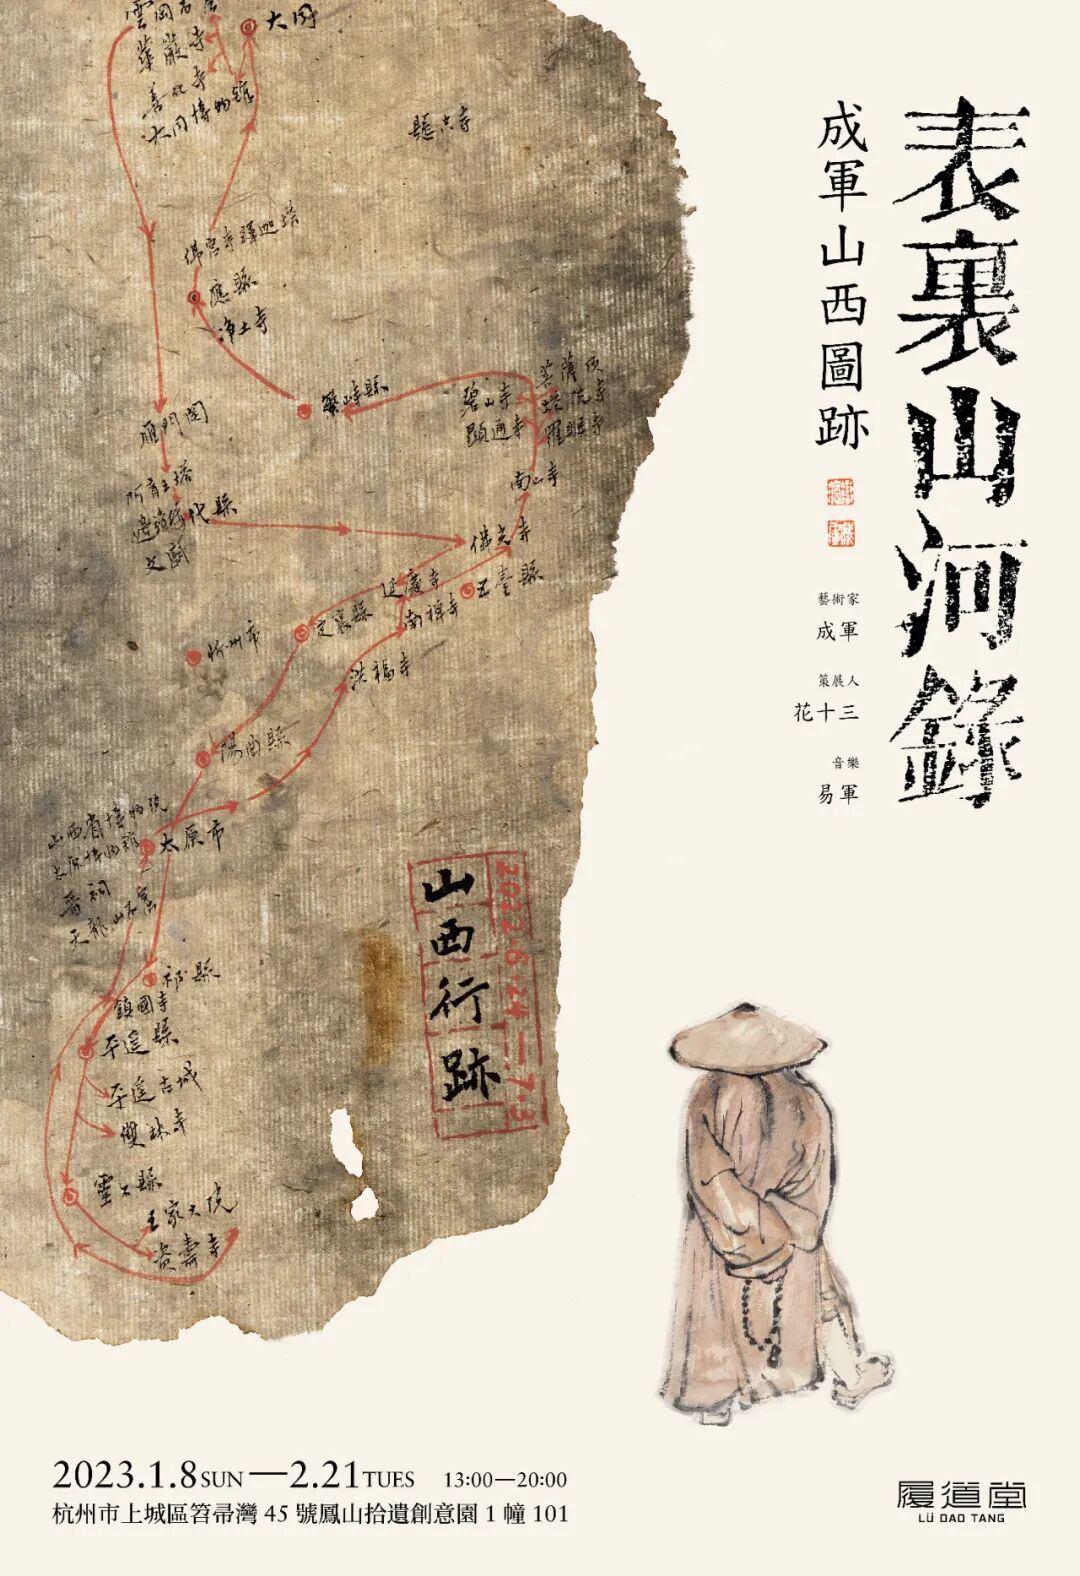 表裏山河錄
成軍山西圖跡
藝術家
成軍
策展人
花十三
音樂
易軍
大同
華嚴寺
善化寺
大同博物館
懸空寺
佛宮寺釋迦塔
應縣
淨土寺
繁峙縣
碧山寺
顯通寺
菩薩頂
塔院寺
羅睺寺
南山寺
雁門關
阿育王塔
邊靖樓
代縣
文廟
佛光寺
延慶寺
南禪寺
五臺縣
定襄縣
忻州市
洪福寺
陽曲縣
山西省博物院
太原博物館
太原市
晉祠
天龍山石窟
祁縣
鎮國寺
平遙縣
平遙古城
雙林寺
靈石縣
王家大院
資壽寺
山西行跡
2022.6.24—7.3
2023.1.8 SUN—2.21 TUES 13:00—20:00
杭州市上城區笤帚灣 45 號鳳山拾遺創意園 1 幢 101
履道堂
LÜ DAO TANG